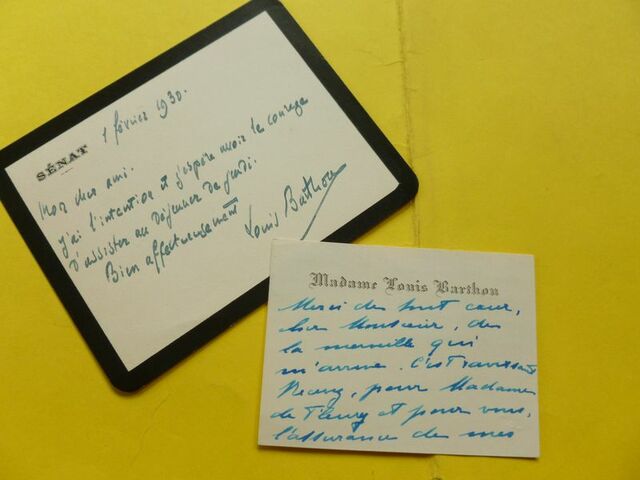 SÉNAT
1 février 1930.
Mon cher ami.
J'ai l'intention et j'espère avoir le courage
d'assister au déjeuner de jeudi.
Bien affectueusement
Louis Barthou
Madame Louis Barthou
Merci de tout cœur,
cher Monsieur, de
la merveille qui
m'arrive. C'est ravissant
Recevez, pour Madame
de Fleury et pour vous,
l'assurance de mes